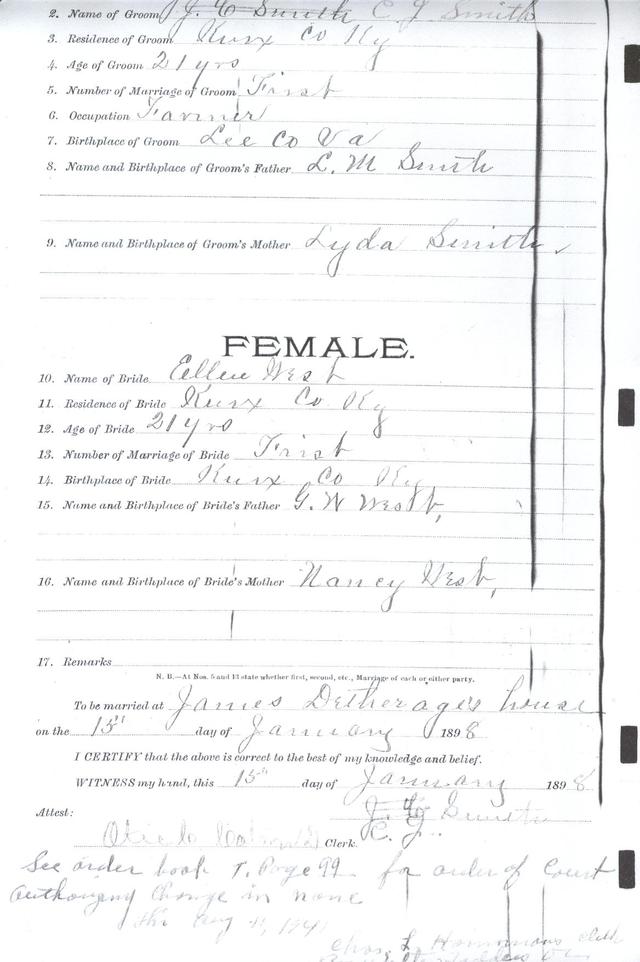 2. Name of Groom J. C. Smith C. J. Smith
3. Residence of Groom Knox Co Ky
4. Age of Groom 21 yrs
5. Number of Marriage of Groom First
6. Occupation Farmer
7. Birthplace of Groom Lee Co Va
8. Name and Birthplace of Groom's Father L. M Smith
9. Name and Birthplace of Groom's Mother Lyda Smith
FEMALE.
10. Name of Bride Ellen West
11. Residence of Bride Knox Co Ky
12. Age of Bride 21 yrs
13. Number of Marriage of Bride First
14. Birthplace of Bride Knox Co Ky
15. Name and Birthplace of Bride's Father G. W West,
16. Name and Birthplace of Bride's Mother Nancy West,
17. Remarks
N. B.—At Nos. 5 and 13 state whether first, second, etc., Marriage of each or either party.
To be married at James Detherage's house
on the 15" day of January 1898
I CERTIFY that the above is correct to the best of my knowledge and belief.
WITNESS my hand, this 15" day of January 1898
J. C. Smith
C. J.
Attest:
Clerk.
See order book T. Page 99 for order of Court
Authorizing Change in name
this Aug
Chas. L. Hammons Clerk